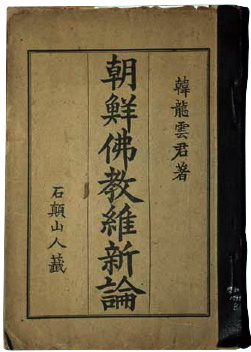 韓龍雲君著
朝鮮佛教維新論
石顚山人藏